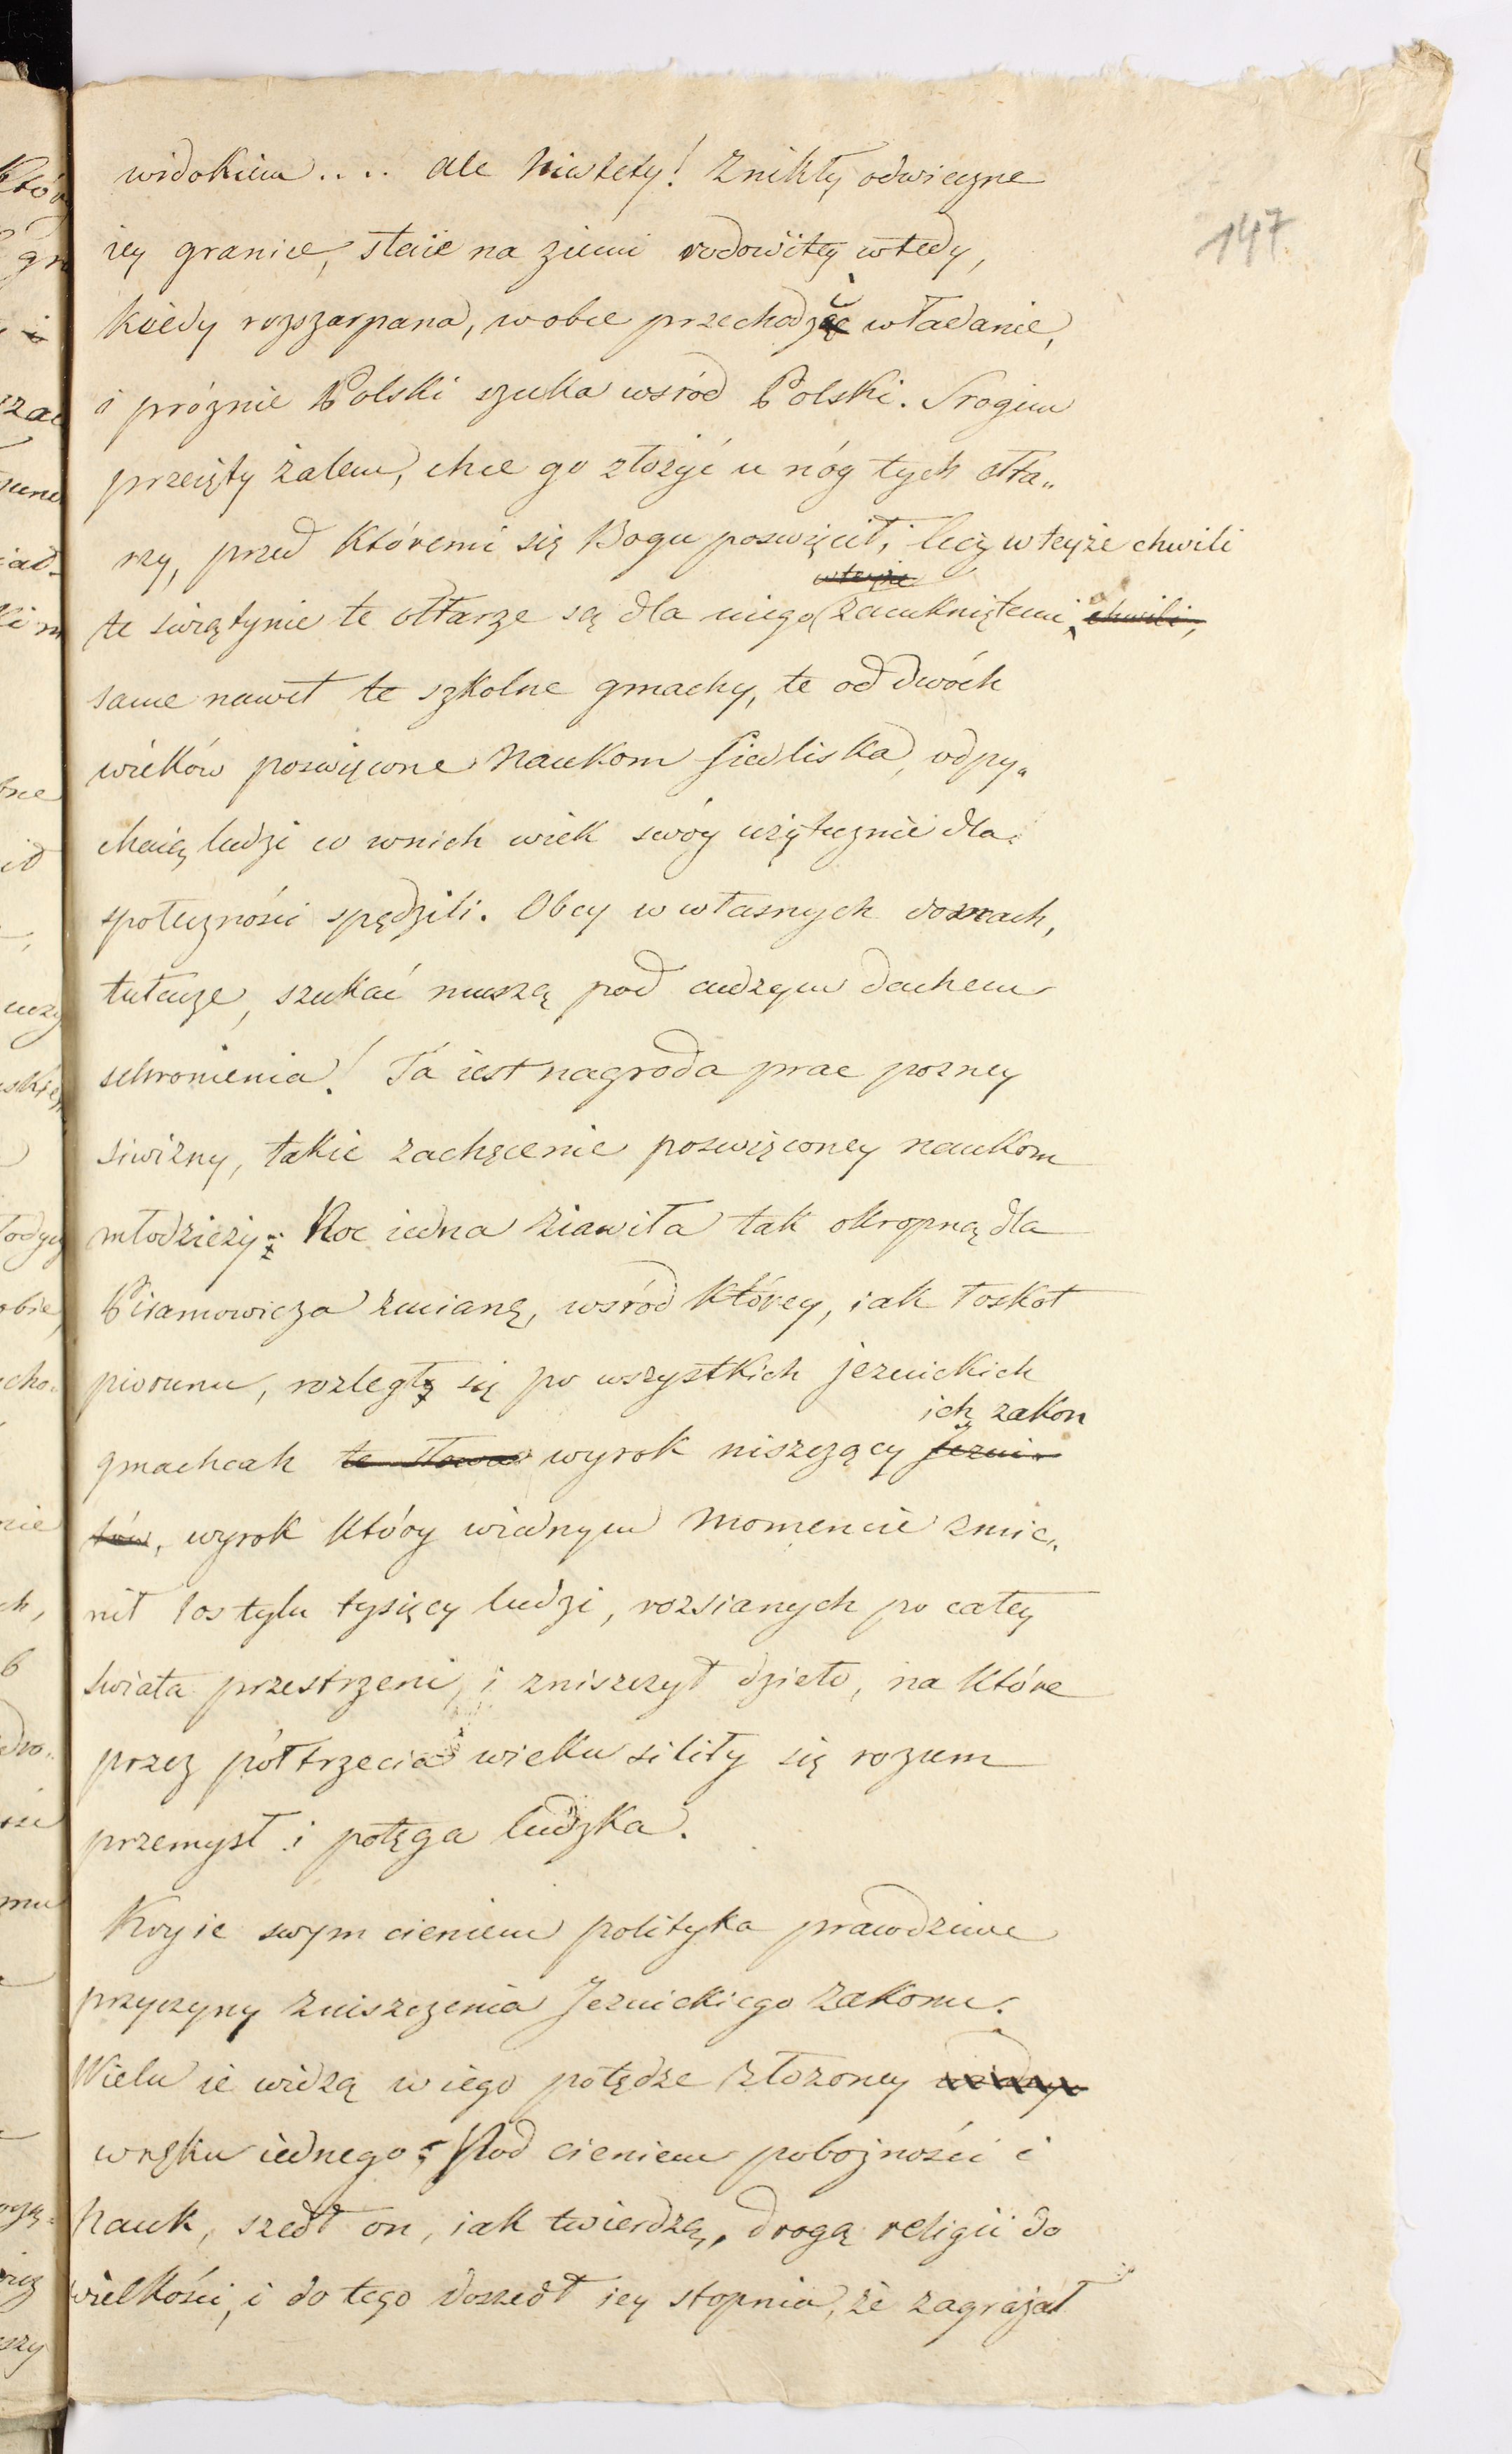 147
widokiem.... ale niestety! Znikły odwieczne
iey granice, staie na ziemi rodowitey wtedy,
kiedy rozszarpana, w obce przechodzi władanie,
i próznie Polski szuka wsród Polski. Srogim
przeięty żalem, chce go złożyć u nóg tych ołta„
rzy, przed któremi się Bogu poswięcił, lecz w teyże chwili
wteyże
te swiątynie te ołtarze są dla niego zamkniętemi, chwili,
same nawet te szkolne gmachy, te od dwóch
wieków poswięcone Naukom siedliska, odpy„
chaią ludzi co w nich wiek swóy użytecznie dla
społecznosci spędzili. Obcy w własnych domach,
tułacze, szukać muszą pod cudzym dachem
schronienia! Ta iest nagroda prac pozney
siwizny, takie zachęcenie poswięconey naukom
młodzieży: Noc iedna ziawiła tak okropną dla
Piramowicza zmianę, wsród którey, iak łoskot
piorunu, rozległ się po wszystkich jezuickich
ich zakon
gmachcah te słowa wyrok niszczący Jezui„
tów, wyrok który wiednym momencie zmie„
nił los tylu tysięcy ludzi, rozsianych po całey
swiata przestrzeni, i zniszczył dzieło, na które
przez półtrzecia wieku siliły się rozum
przemysł i potęga ludzka.
Kryie swym cieniem polityka prawdziwe
przyczyny zniszczenia Jezuickiego zakonu.
Wielu ie widzą w iego potędze złożoney
w ręku iednego; Pod cieniem pobożności i
Nauk, szedł on, iak twierdzą, drogą religii do
wielkości, i do tego doszedł iey stopnia, że zagrażał